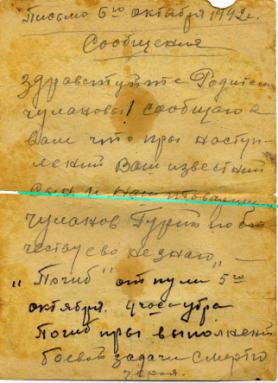 "Письмо 5го октября 1942г.
Сообщения
Здравствуйте Родители
чулановы! сообщаю я
Вам что при наступ-
лений Ваш известний
Сын и наш товарищ
чуланов Гурий по отчеству ево не знаю, —
"Погиб" от пули 5го
октября. 4 часа утра
Погиб при выполнений
боевой задачи смертю